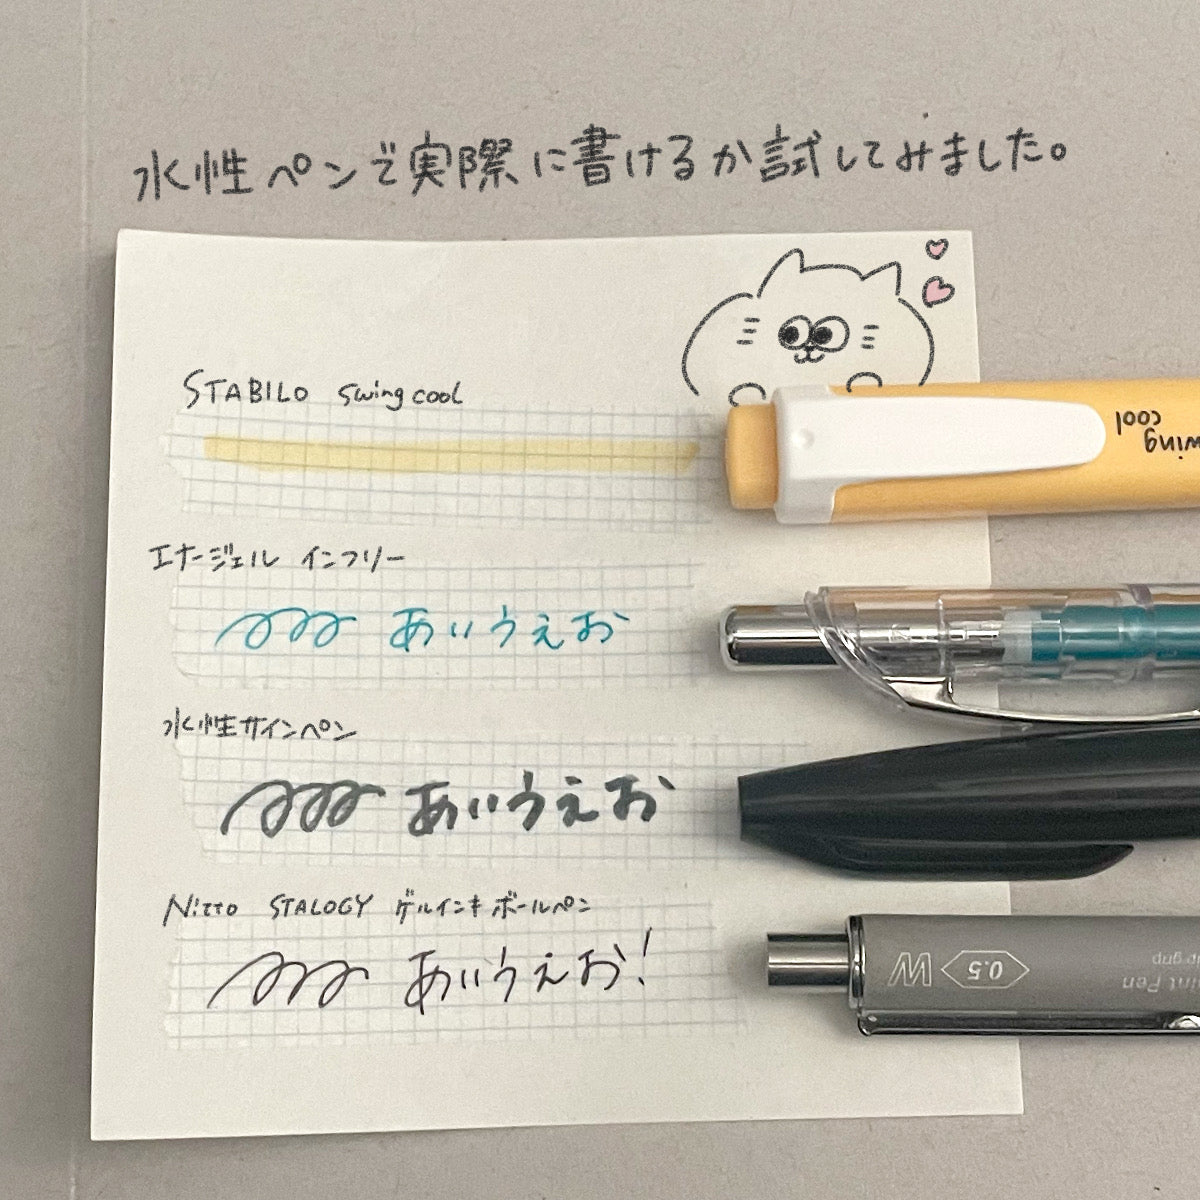 水性ペンで実際に書けるか試してみました。
STABILO swing cool
wing
cool
エナージェル インフリー
あいうえお
水性サインペン
あいうえお
Nitto STALOGY ゲルインキボールペン
あいうえお!
W 0.5
int Pen
grip